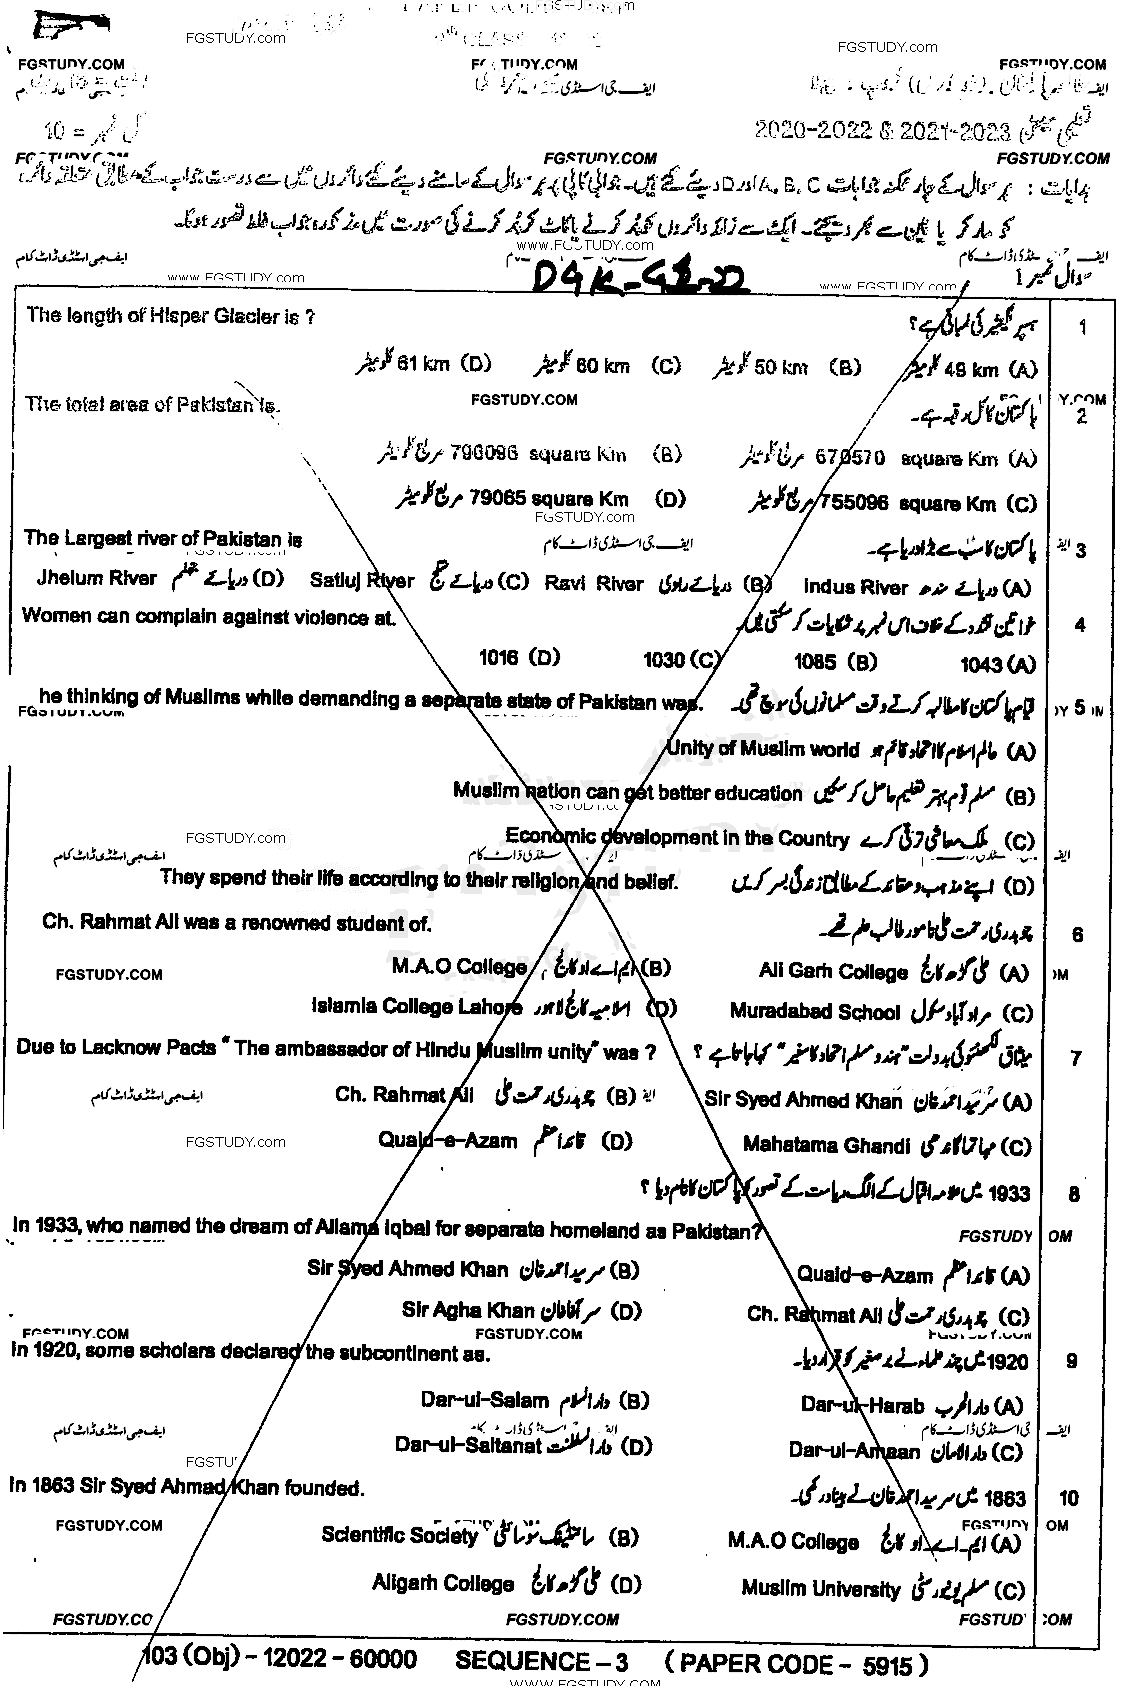 FGSTUDY.com
FGSTUDY.com
9th CLASS
FGSTUDY.COM
TUDY.COM
FGSTUDY.COM
ایف جی اسٹڈی
کل نمبر = 10
2020-2022 & 2021-2023
FGSTUDY.COM
FGSTUDY.COM
FGSTUDY.COM
ہدایات : ہر سوال کے چار ممکنہ جوابات A, B, C اور D دیئے گئے ہیں۔ جوابی کاپی پر ہر سوال کے سامنے دیئے گئے دائروں میں سے درست جواب کے مطابق متعلقہ دائرہ
کو مارکر یا پین سے بھر دیجئے۔ ایک سے زائد دائروں کو پُر کرنے یا کاٹ کر پُر کرنے کی صورت میں مذکورہ جواب غلط تصور ہوگا۔
www.FGSTUDY.COM
ایف جی اسٹڈی ڈاٹ کام
www.FGSTUDY.com
DGK-G1-22
www.FGSTUDY.COM
سوال نمبر 1
The length of Hisper Glacier is ?
ہسپر گلیشیر کی لمبائی ہے؟
1
(A) 49 km کلومیٹر (B) 50 km کلومیٹر (C) 60 km کلومیٹر (D) 61 km کلومیٹر
FGSTUDY.COM
Y.COM
The total area of Pakistan is.
پاکستان کا کل رقبہ ہے۔
2
(A) 670570 square Km مربع کلومیٹر (B) 796096 square Km مربع کلومیٹر
(C) 755096 square Km مربع کلومیٹر (D) 79065 square Km مربع کلومیٹر
FGSTUDY.com
The Largest river of Pakistan is
ایف جی اسٹڈی ڈاٹ کام
پاکستان کا سب سے بڑا دریا ہے۔
3
(A) دریائے سندھ Indus River (B) دریائے راوی Ravi River (C) دریائے ستلج Satluj River (D) دریائے جہلم Jhelum River
Women can complain against violence at.
خواتین تشدد کے خلاف اس نمبر پر شکایات کر سکتی ہیں۔
4
(A) 1043 (B) 1085 (C) 1030 (D) 1016
he thinking of Muslims while demanding a separate state of Pakistan was.
قیام پاکستان کا مطالبہ کرتے وقت مسلمانوں کی سوچ تھی۔
5
(A) عالم اسلام کا اتحاد قائم ہو Unity of Muslim world
(B) مسلم قوم بہتر تعلیم حاصل کر سکیں Muslim nation can get better education
FGSTUDY.com
(C) ملک معاشی ترقی کرے Economic development in the Country
ایف جی اسٹڈی ڈاٹ کام
(D) اپنے مذہب و عقائد کے مطابق زندگی بسر کریں They spend their life according to their religion and belief.
Ch. Rahmat Ali was a renowned student of.
چوہدری رحمت علی نامور طالب علم تھے۔
6
(A) علی گڑھ کالج Ali Garh College (B) ایم اے او کالج M.A.O College
FGSTUDY.COM
(C) مراد آباد سکول Muradabad School (D) اسلامیہ کالج لاہور Islamia College Lahore
Due to Lacknow Pacts " The ambassador of Hindu Muslim unity" was ?
میثاق لکھنؤ کی بدولت "ہندو مسلم اتحاد کا سفیر" کہا جاتا ہے ؟
7
(A) سرسید احمد خان Sir Syed Ahmed Khan (B) چوہدری رحمت علی Ch. Rahmat Ali
ایف جی اسٹڈی ڈاٹ کام
FGSTUDY.com
(C) مہاتما گاندھی Mahatama Ghandi (D) قائداعظم Quaid-e-Azam
1933 میں علامہ اقبال کے الگ ریاست کے تصور کو پاکستان کا نام دیا ؟
8
In 1933, who named the dream of Allama Iqbal for separate homeland as Pakistan?
FGSTUDY
OM
(A) قائداعظم Quaid-e-Azam (B) سرسید احمد خان Sir Syed Ahmed Khan
(C) چوہدری رحمت علی Ch. Rahmat Ali (D) سر آغا خان Sir Agha Khan
FGSTUDY.COM
FGSTUDY.COM
In 1920, some scholars declared the subcontinent as.
1920 میں چند علماء نے برصغیر کو قرار دیا۔
9
(A) دارالحرب Dar-ul-Harab (B) دارالسلام Dar-ul-Salam
ایف جی اسٹڈی ڈاٹ کام
(C) دارالامان Dar-ul-Amaan (D) دارالسلطنت Dar-ul-Saltanat
FGSTU
In 1863 Sir Syed Ahmad Khan founded.
1863 میں سرسید احمد خان نے بنیاد رکھی۔
10
FGSTUDY.COM
FGSTUDY
OM
(A) ایم۔اے۔او کالج M.A.O College (B) سائنٹیفک سوسائٹی Scientific Society
(C) مسلم یونیورسٹی Muslim University (D) علی گڑھ کالج Aligarh College
FGSTUDY.CO
FGSTUDY.COM
FGSTUD
COM
103 (Obj) - 12022 - 60000 SEQUENCE - 3 ( PAPER CODE - 5915 )
WWW.FGSTUDY.COM